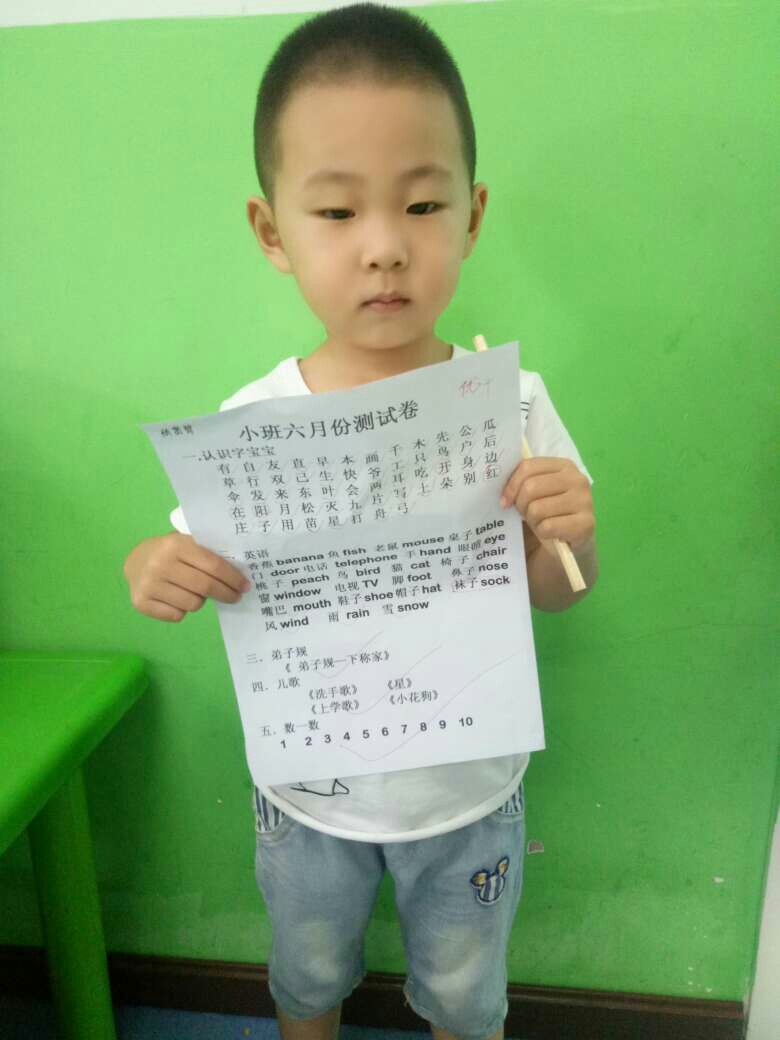 优+
小班六月份测试卷
一.认识字宝宝
有 自 友 直 早 本 画 千 木 先 公 瓜
草 行 双 己 生 快 爷 工 只 鸟 户 后
伞 发 来 东 叶 会 两 耳 吃 开 身 边
在 阳 月 松 灭 九 片 写 上 朵 别 红
庄 子 用 苗 星 打 舟 弓
二. 英语
香蕉 banana 鱼 fish 老鼠 mouse 桌子 table
门 door 电话 telephone 手 hand 眼睛 eye
桃子 peach 鸟 bird 猫 cat 椅子 chair
窗 window 电视 TV 脚 foot 鼻子 nose
嘴巴 mouth 鞋子 shoe 帽子 hat 袜子 sock
风 wind 雨 rain 雪 snow
三. 弟子规
《弟子规—下称家》
四. 儿歌
《洗手歌》 《星》
《上学歌》 《小花狗》
五. 数一数
1 2 3 4 5 6 7 8 9 10